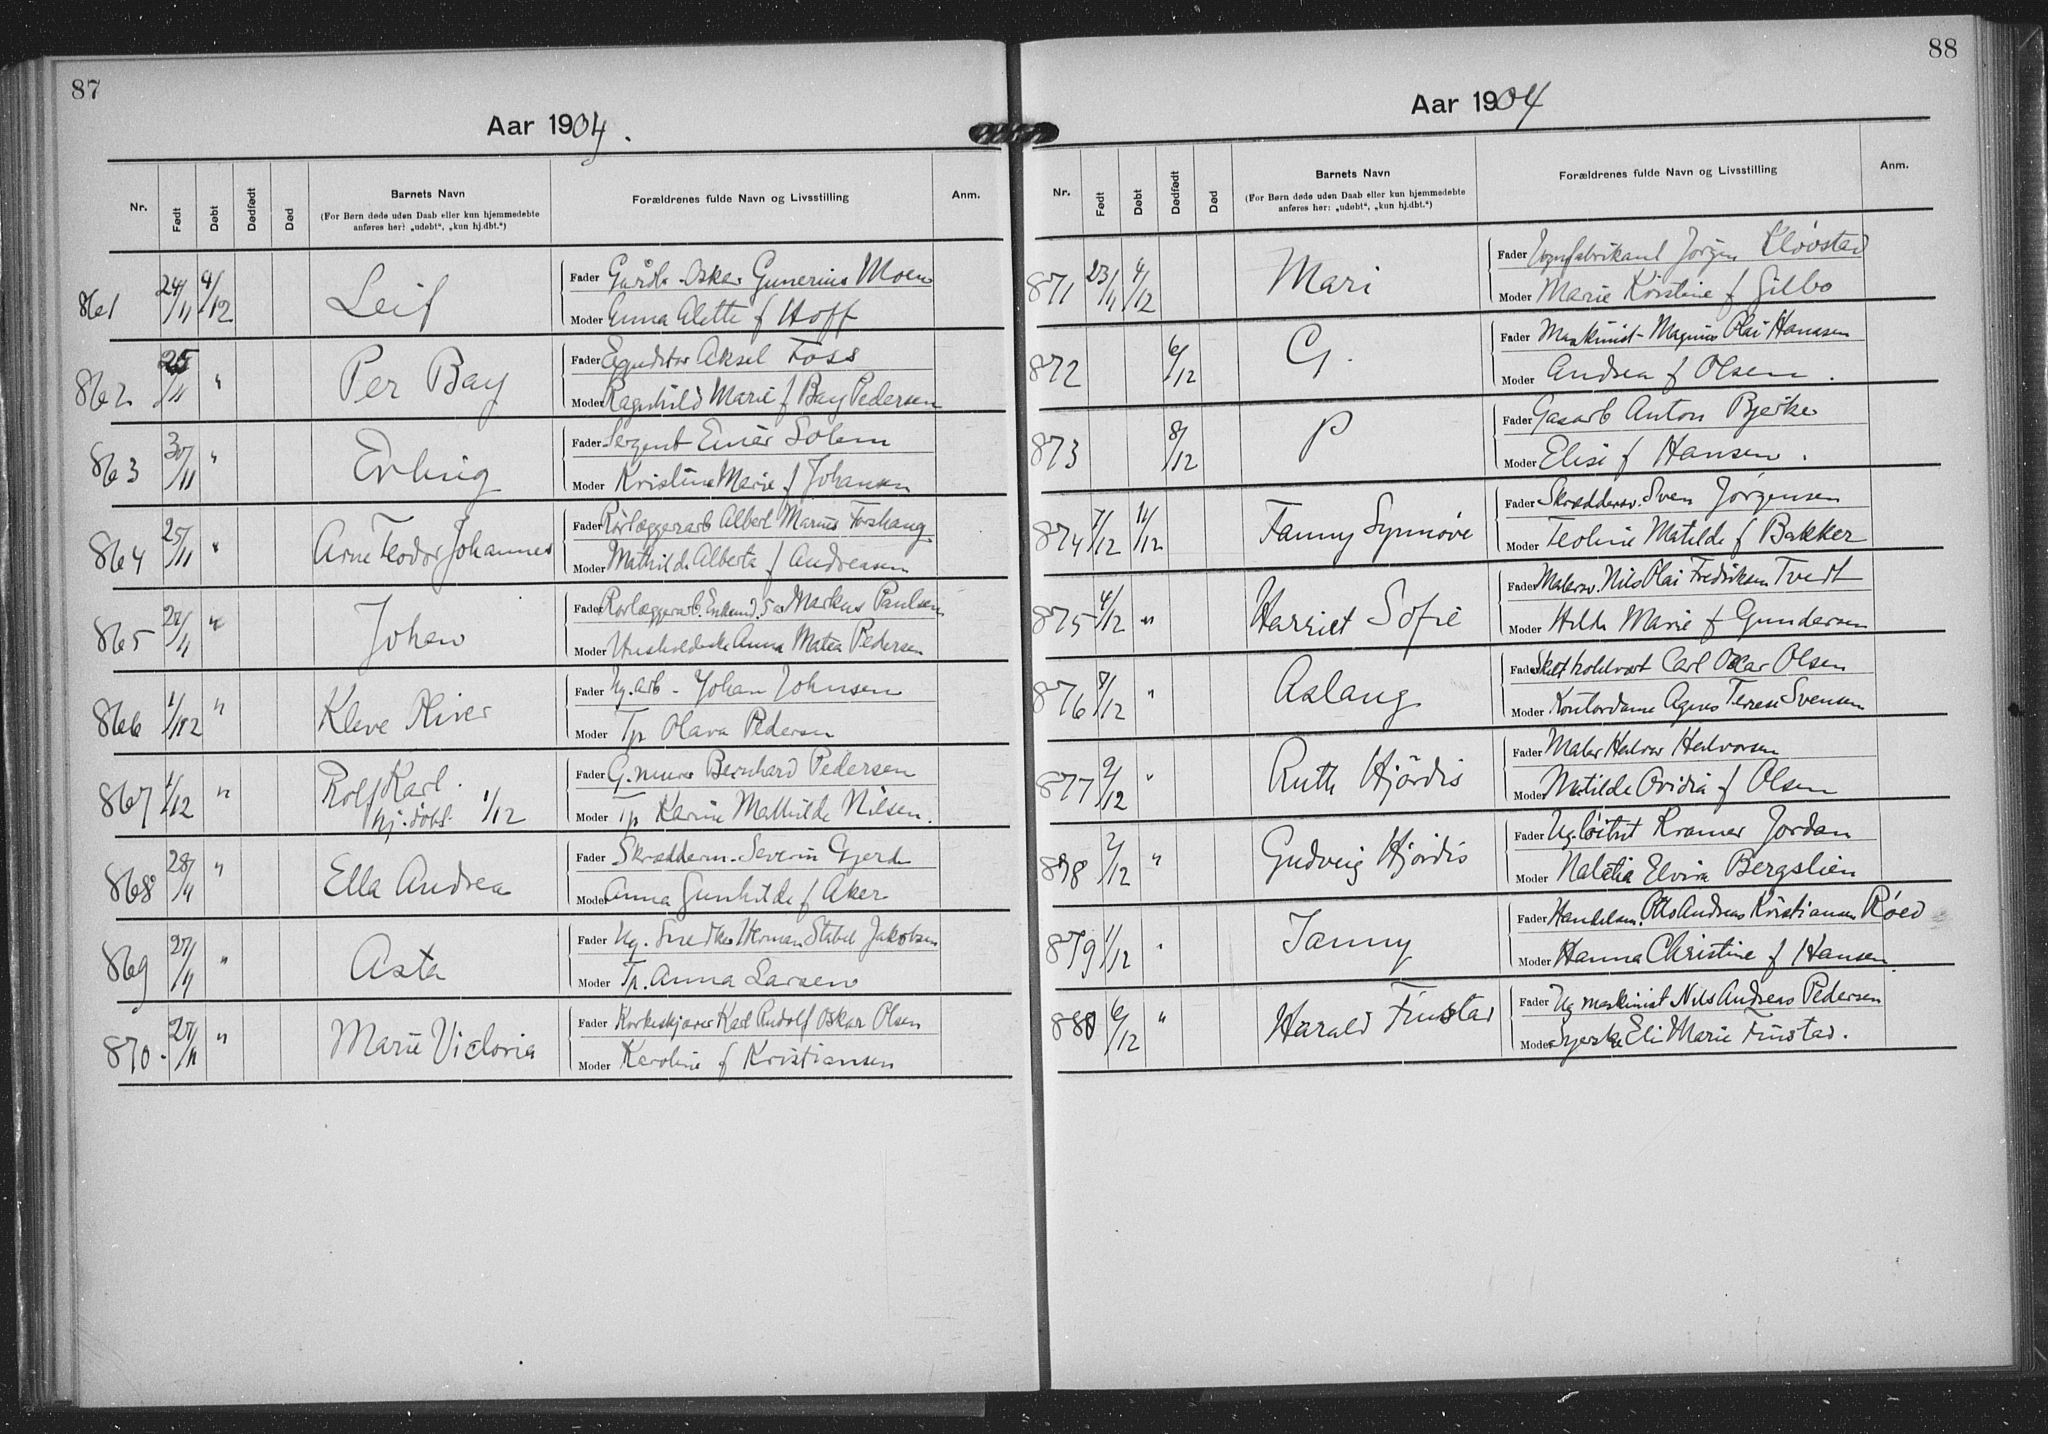 87
Aar 1904.
Nr. Født Døbt Dødfødt Død Barnets Navn Forældrenes fulde Navn og Livsstilling Anm.
(For Børn døde uden Daab eller kun hjemmedøbte
anføres her: „udøbt“, „kun hj.dbt.“)
861 24/11 4/12 Leif Fader Gårdb. Oskar Gunerius Moen
Moder Anna Alette f Hoff
862 25/11 " Per Bay Fader Expeditør Aksel Foss
Moder Ragnhild Marie f Bay Pedersen
863 30/11 " Erling Fader Sergent Einar Solem
Moder Kristine Marie f Johansen
864 25/11 " Arne Teodor Johannes Fader Rørlæggerarb Albert Marius Forshaug
Moder Mathilde Alberta f Andreasen
865 27/11 " Johan Fader Rørlæggerarb. Enkem. Markus Paulsen
Moder Husholderske Anna Matea Pedersen
866 1/12 " Kleve Oliver Fader Ug. arb - Johan Johnsen
Moder Tp Olava Pedersen
867 1/12 " Rolf Karl. Fader G. murer Bernhard Pedersen
hj. døbt 1/12 Moder Tp Karine Mathilde Nilsen.
868 28/11 " Ella Andrea Fader Skrædderm. Severin Gjerde
Moder Anna Gunhilde f Aker
869 27/11 " Asta Fader Ug. Snedker Herman Stabel Jakobsen
Moder Tp. Anna Larsen
870. 27/11 " Marie Victoria Fader Korkeskjærer Karl Rudolf Oskar Olsen
Moder Karoline f Kristiansen
88
Aar 1904
Nr. Født Døbt Dødfødt Død Barnets Navn Forældrenes fulde Navn og Livsstilling Anm.
(For Børn døde uden Daab eller kun hjemmedøbte
anføres her: „udøbt“, „kun hj.dbt.“)
871 23/11 4/12 Mari Fader Vognfabrikant Jørgen Kløvstad
Moder Marie Kirstine f Gilbo
872 6/12 G. Fader Maskinist - Magnus Olai Hanssen
Moder Andrea f Olsen.
873 8/12 P Fader Gasarb Anton Bjerke
Moder Elise f Hansen.
874 7/12 11/12 Fanny Synnøve Fader Skræddersv. Sven Jørgensen
Moder Teoline Matilde f Bakker
875 4/12 " Harriet Sofie Fader Malersv. Nils Olai Fredriksen Tvedt
Moder Hilda Marie f Gundersen
876 7/12 " Aslaug Fader Carl Oscar Olsen
Moder Kontordame Agnes Terese Svensen
877 9/12 " Ruth Hjördis Fader Maler Halvor Halvorsen
Moder Matilde Ovidia f Olsen
878 2/12 " Gudveig Hjördis Fader Ug. løitnt Kramer Jordan
Moder Natalia Elvira Bergslien
879 1/12 " Janny Fader Handelsm. Otto Andreas Kristiansen Røed
Moder Hanna Christine f Hansen
880 6/12 " Harald Finstad Fader Ug maskinist Nils Andreas Pedersen
Moder Syerske Eli Marie Finstad.